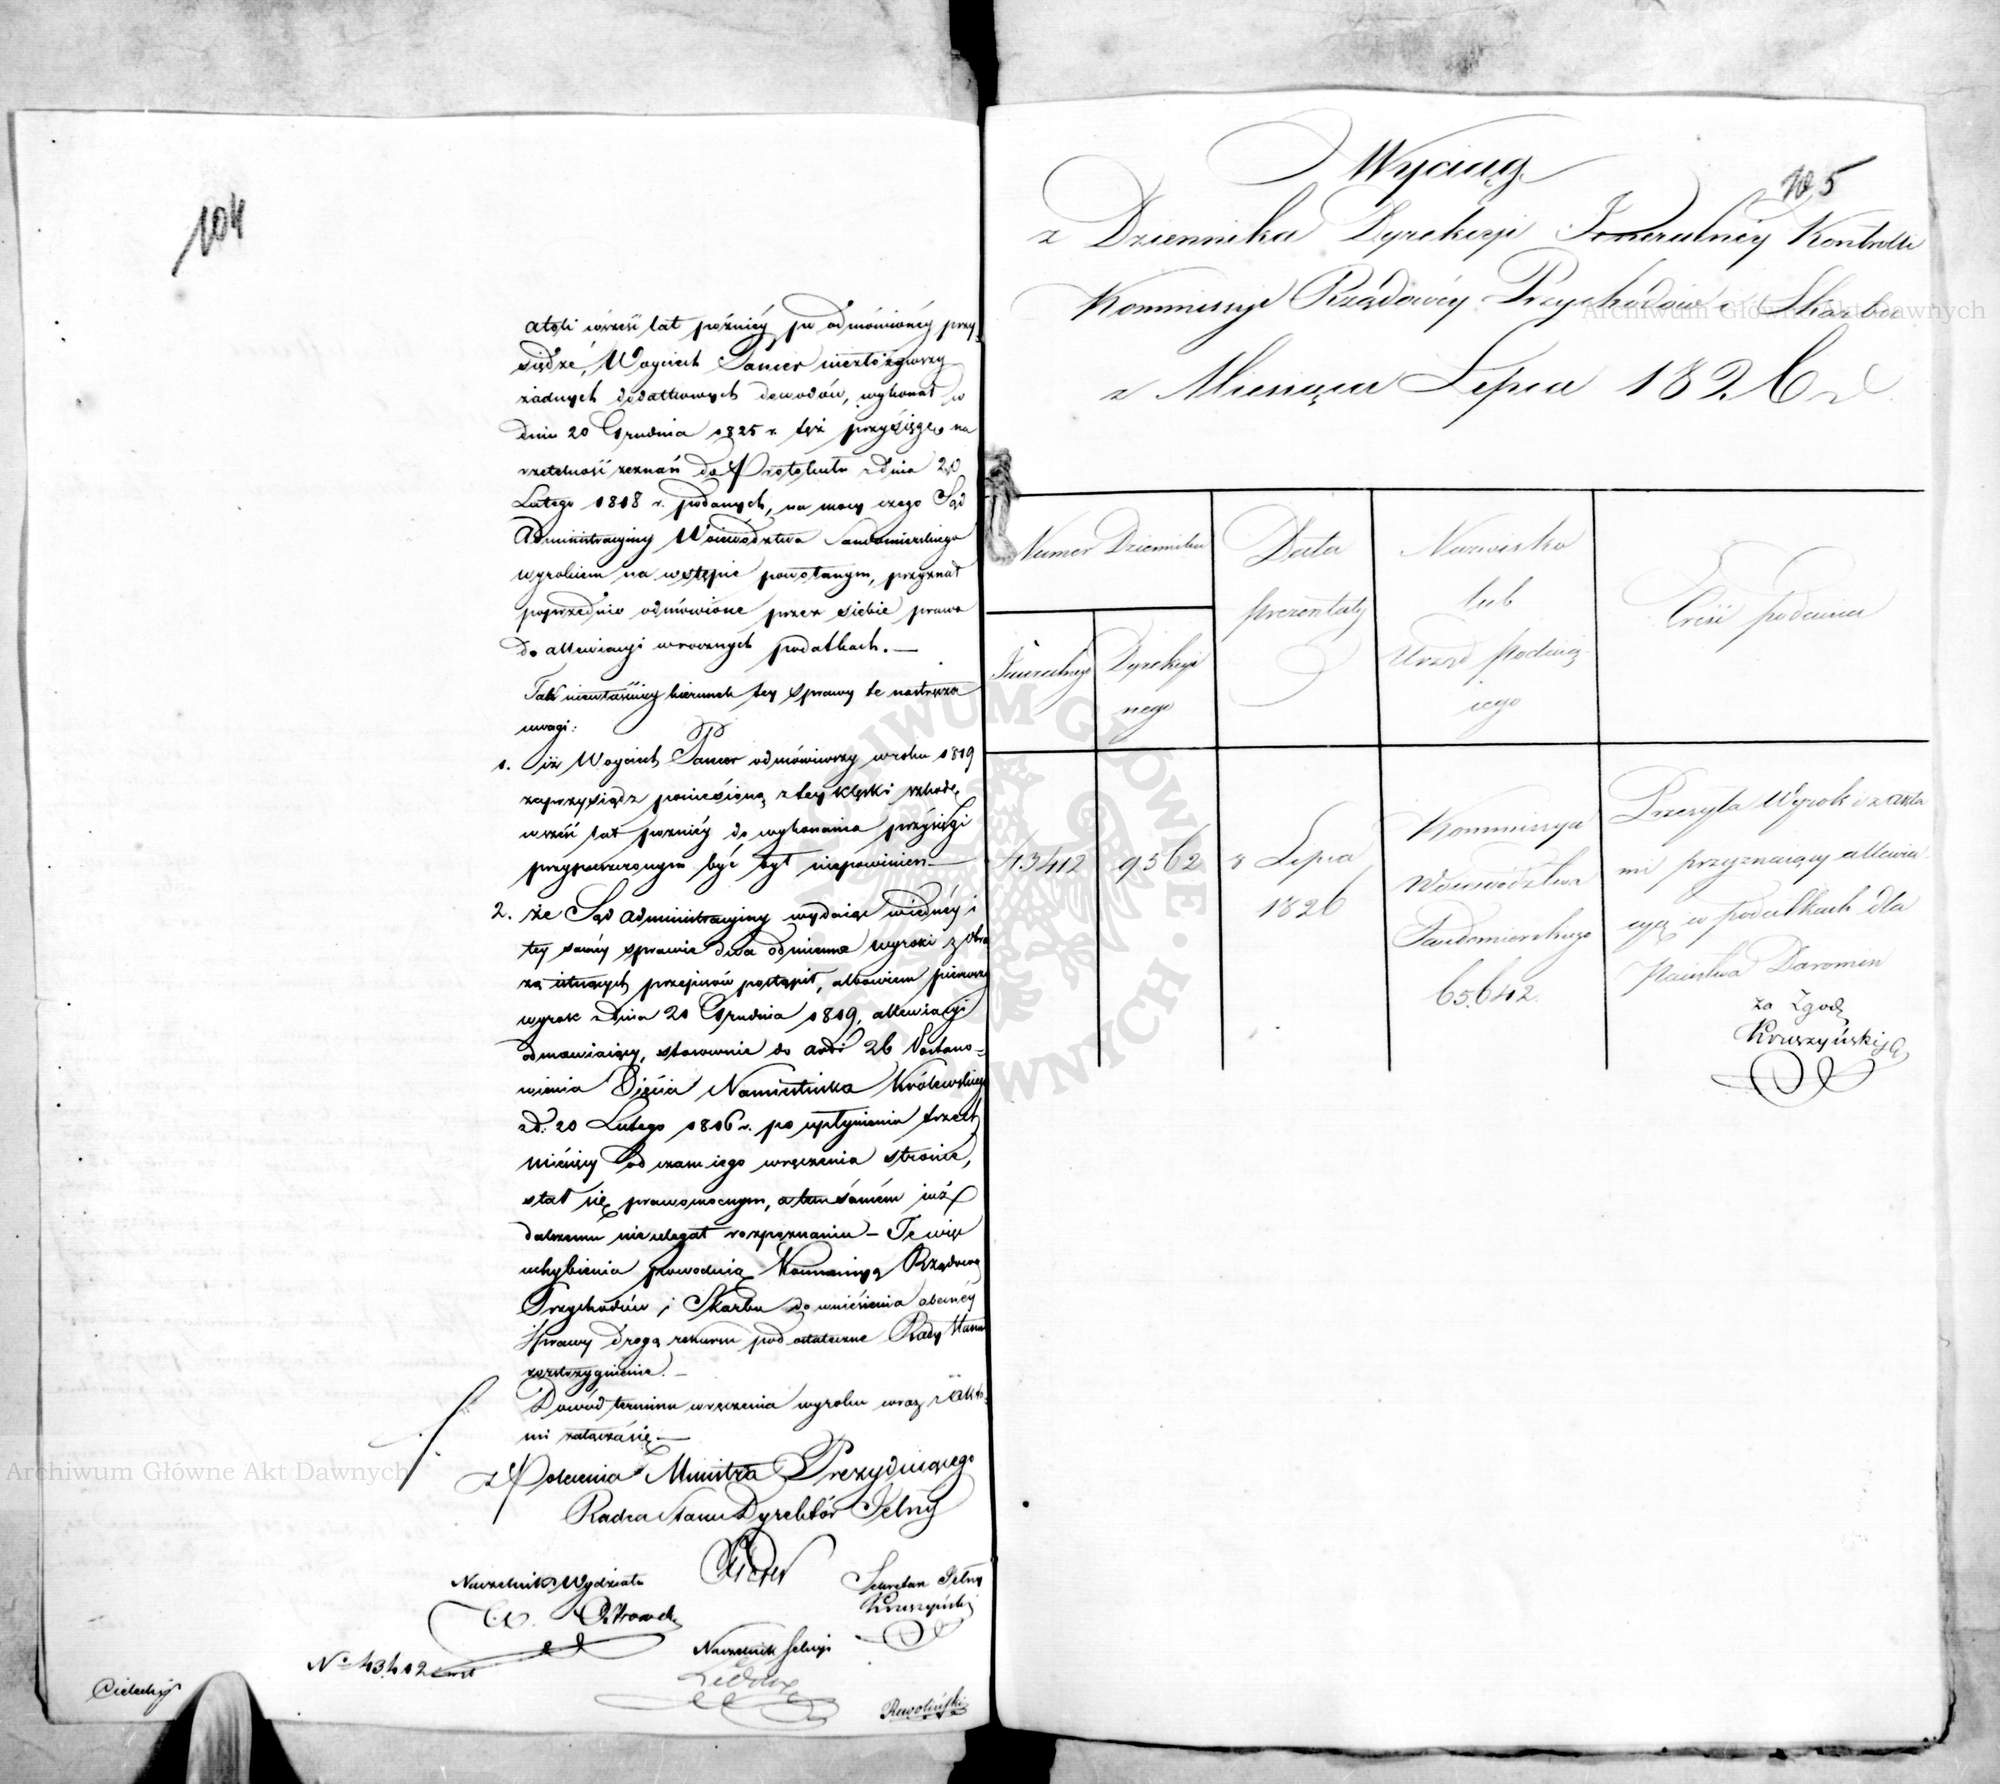 104
atoli w sześć lat póżniéy po odmówionéy przy-
siędze, Woyciech Pancer niezłożywszy
żadnych dodatkowych dowodów, wykonał w
dniu 20 Grudnia 1825 r. też przysięgę na
rzetelność zeznań do Protokułu z dnia 20
Lutego 1818 r. podanych, na mocy czego Sąd
Administracyiny Woiewództwa Sandomierskiego
wyrokiem na wstępie powołanym, przyznał
poprzednio odmówione przez siebie prawo
do allewiacyi w rocznych podatkach. —
Tak niewłaściwy kierunek tey sprawy te nastręcza
uwagi:
1. iż Woyciech Pancer odmówiwszy w roku 1819
zaprzysiądz poniesioną z tey klęski szkodę,
w sześć lat poźniéy do wykonania przysięgi
przypuszczonym być był niepowinien —
2. że Sąd Administracyiny wydaiąc w iednéy i
tey saméy sprawie dwa odmienne wyroki z obra
zą istnących przepisów postąpił, albowiem pierwszy
wyrok z dnia 20 Grudnia 1819, allewiacyi
odmawiaiący, stosownie do arti 26 Postano-
wienia Xięcia Namiestnika Królewskiego
z d: 20 Lutego 1816 r. po upłynieniu trzech
miésięcy od czasu iego wręczenia stronie,
stał się prawomocnym, a tem samém iuż
dalszemu nie ulegał rozpoznaniu — Te więc
uchybienia powoduią Kommissyą Rządową
Przychodów i Skarbu do wniésienia obecnéy
sprawy drogą rekursu pod ostateczne Rady Stanu
rozstrzygnienie. —
Dowód terminu wręczenia wyroku wraz z akta-
mi załącza się —
z Polecenia Ministra Prezyduiącego
Radca Stanu Dyrektór Jelny
Naczelnik Wydziału
Sekretarz Jelny
Kruszyński
Naczelnik Sekcyi
No 43,412
105
Wyciąg
z Dziennika Dyrekcyi Jeneralnéy Kontrolli
Kommissyi Rządowéy Przychodów i Skarbu
z Miesiąca Lipca 1826 r.
Numer Dziennika
Data
prezentaty
Nazwisko
lub
Urząd podaią-
cego
Treść podania
Jeneralnego
Dyrekcyi
nego
43412
9562
8 Lipca
1826
Kommissya
Woiewództwa
Sandomierskiego
65,642.
Przesyła Wyrok i z akta
mi przyznaiący allewia-
cyą w podatkach dla
Państwa Daromin
za Zgodę
Kruszyński
Archiwum Główne Akt Dawnych
Archiwum Główne Akt Dawnych
Archiwum Główne Akt Dawnych
ARCHIWUM GŁÓWNE • AKT DAWNYCH •